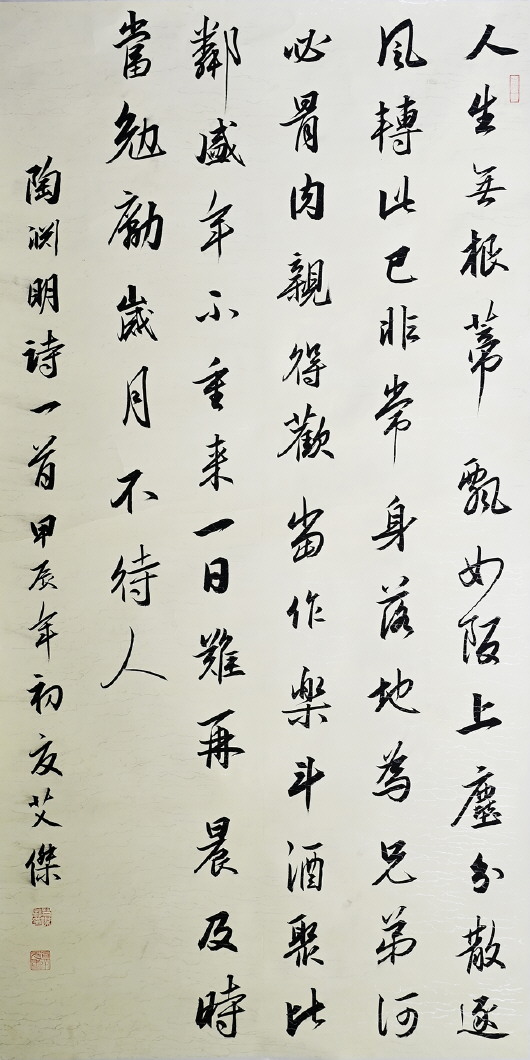 人生無根蒂飄如陌上塵分散逐
風轉此已非常身落地為兄弟何
必骨肉親得歡當作樂斗酒聚比
鄰盛年不重来一日難再晨及時
當勉勵歲月不待人
陶渊明詩一首甲辰年初夏艾傑